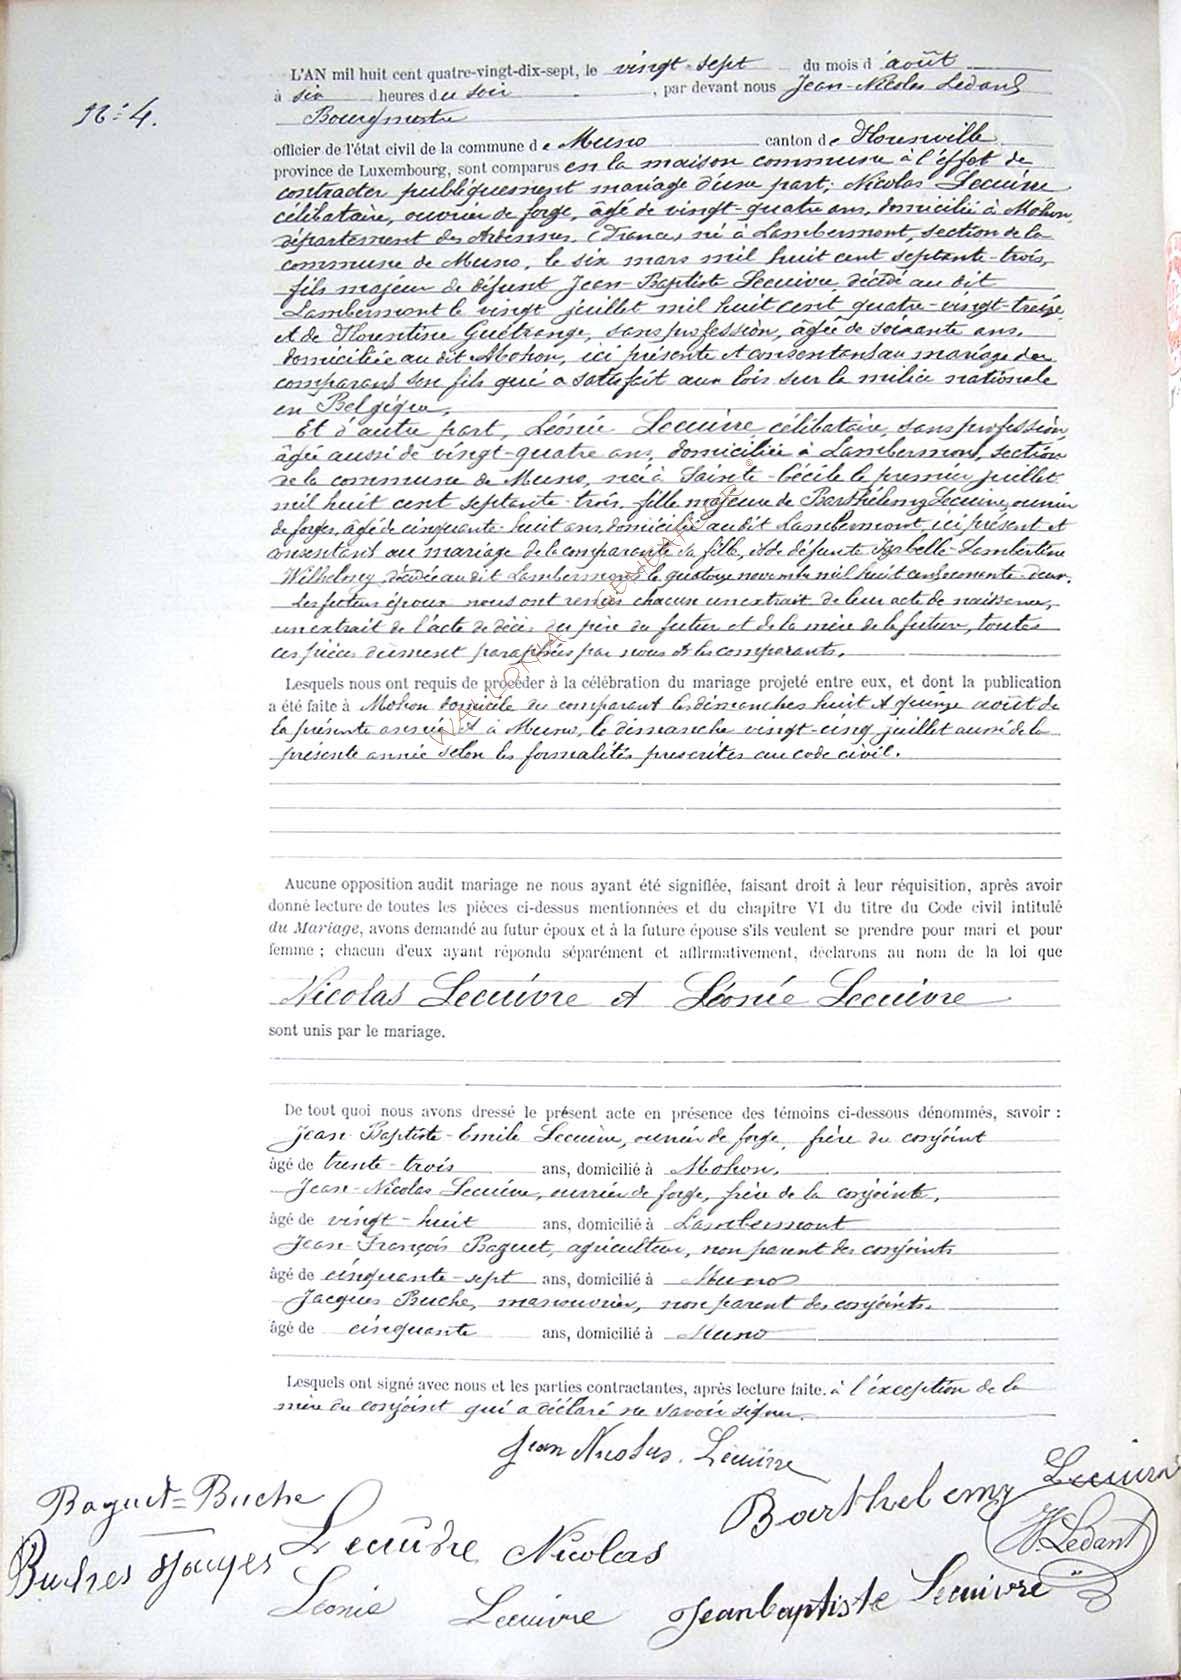 N° 4.
L'AN mil huit cent quatre-vingt-dix-sept, le vingt-sept du mois d'août
à six heures du soir, par devant nous Jean-Nicolas Ledant
Bourgmestre
officier de l'état civil de la commune de Muno canton de Florenville
province de Luxembourg, sont comparus en la maison commune à l'effet de
contracter publiquement mariage d'une part; Nicolas Lecuivre
célibataire, ouvrier de forge, âgé de vingt-quatre ans, domicilié à Mohon,
département des Ardennes, (France) né à Lambermont, section de la
commune de Muno, le six mars mil huit cent septante-trois,
fils majeur de défunt Jean-Baptiste Lecuivre, décédé au dit
Lambermont le vingt juillet mil huit cent quatre-vingt-treize
et de Florentine Guétrange, sans profession, âgée de soixante ans,
domiciliée au dit Mohon, ici présente et consentant au mariage du
comparant son fils qui a satisfait aux lois sur la milice nationale
en Belgique.
Et d'autre part, Léonie Lecuivre, célibataire, sans profession,
âgée aussi de vingt-quatre ans, domiciliée à Lambermont, section
de la commune de Muno, née à Sainte-Cécile le premier juillet
mil huit cent septante-trois, fille majeure de Barthélemy Lecuivre, ouvrier
de forges, âgé de cinquante-huit ans, domicilié au dit Lambermont, ici présent et
consentant au mariage de la comparante sa fille, et de défunte Isabelle-Lambertine
décédée au dit Lambermont le quatorze novembre mil huit cent
Les futurs époux nous ont remis chacun un extrait de leur acte de naissance,
un extrait de l'acte de décès du père du futur et de la mère de la future, toutes
ces pièces dûment paraphées par nous et les comparants.
Lesquels nous ont requis de procéder à la célébration du mariage projeté entre eux, et dont la publication
a été faite à Mohon domicile du comparant les dimanches huit et quinze août de
la présente année et à Muno, le dimanche vingt-cinq juillet aussi de la
présente année selon les formalités prescrites au code civil.
Aucune opposition audit mariage ne nous ayant été signifiée, faisant droit à leur réquisition, après avoir
donné lecture de toutes les pièces ci-dessus mentionnées et du chapitre VI du titre du Code civil intitulé
du Mariage, avons demandé au futur époux et à la future épouse s'ils veulent se prendre pour mari et pour
femme ; chacun d'eux ayant répondu séparément et affirmativement, déclarons au nom de la loi que
Nicolas Lecuivre et Léonie Lecuivre
sont unis par le mariage.
De tout quoi nous avons dressé le présent acte en présence des témoins ci-dessous dénommés, savoir :
Jean-Baptiste-Emile Lecuivre, ouvrier de forge, frère du conjoint
âgé de trente-trois ans, domicilié à Mohon,
Jean-Nicolas Lecuivre, ouvrier de forge, frère de la conjointe,
âgé de vingt-huit ans, domicilié à Lambermont
Jean-François Baguet, agriculteur, non parent des conjoints
âgé de cinquante-sept ans, domicilié à Muno
Jacques Buche, manouvrier, non parent des conjoints.
âgé de cinquante ans, domicilié à Muno
Lesquels ont signé avec nous et les parties contractantes, après lecture faite. à l'exception de la
mère du conjoint qui a déclaré ne savoir signer.
Jean Nicolas. Lecuivre
Baguet=Buche
Barthelemy Lecuivre
Lecuivre Nicolas
Ledant
Buches Jacques
Léonie Lecuivre
Jeanbaptiste Lecuivre
WALLONIA GENEAFER ®